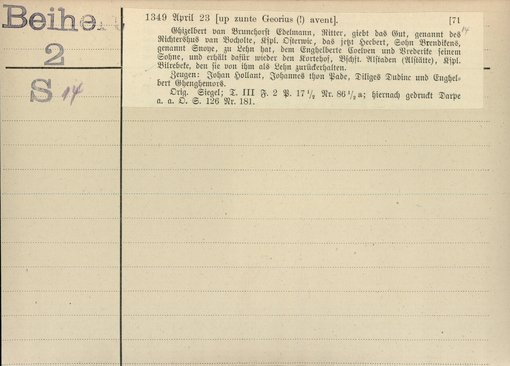 Beihe
2
S 14
1349 April 23 [up zunte Georius (!) avent]. [71
14
Ghizelbert van Brunchorst Edelmann, Ritter, giebt das Gut, genannt des
Richtershus van Bocholte, Kspl. Osterwic, das jetzt Herbert, Sohn Brendikens,
genannt Snoye, zu Lehn hat, dem Enghelberte Coelven und Vrederike seinem
Sohne, und erhält dafür wieder den Kortehof, Bschft. Alstaden (Alstätte), Kspl.
Bilrebeke, den sie von ihm als Lehn zurückerhalten.
Zeugen: Johan Hollant, Johannes thon Pade, Diliges Dubinc und Enghel-
bert Ghenghemors.
Orig. Siegel; T. III F. 2 P. 17 1/2 Nr. 86 1/2 a; hiernach gedruckt Darpe
a. a. O. S. 126 Nr. 181.